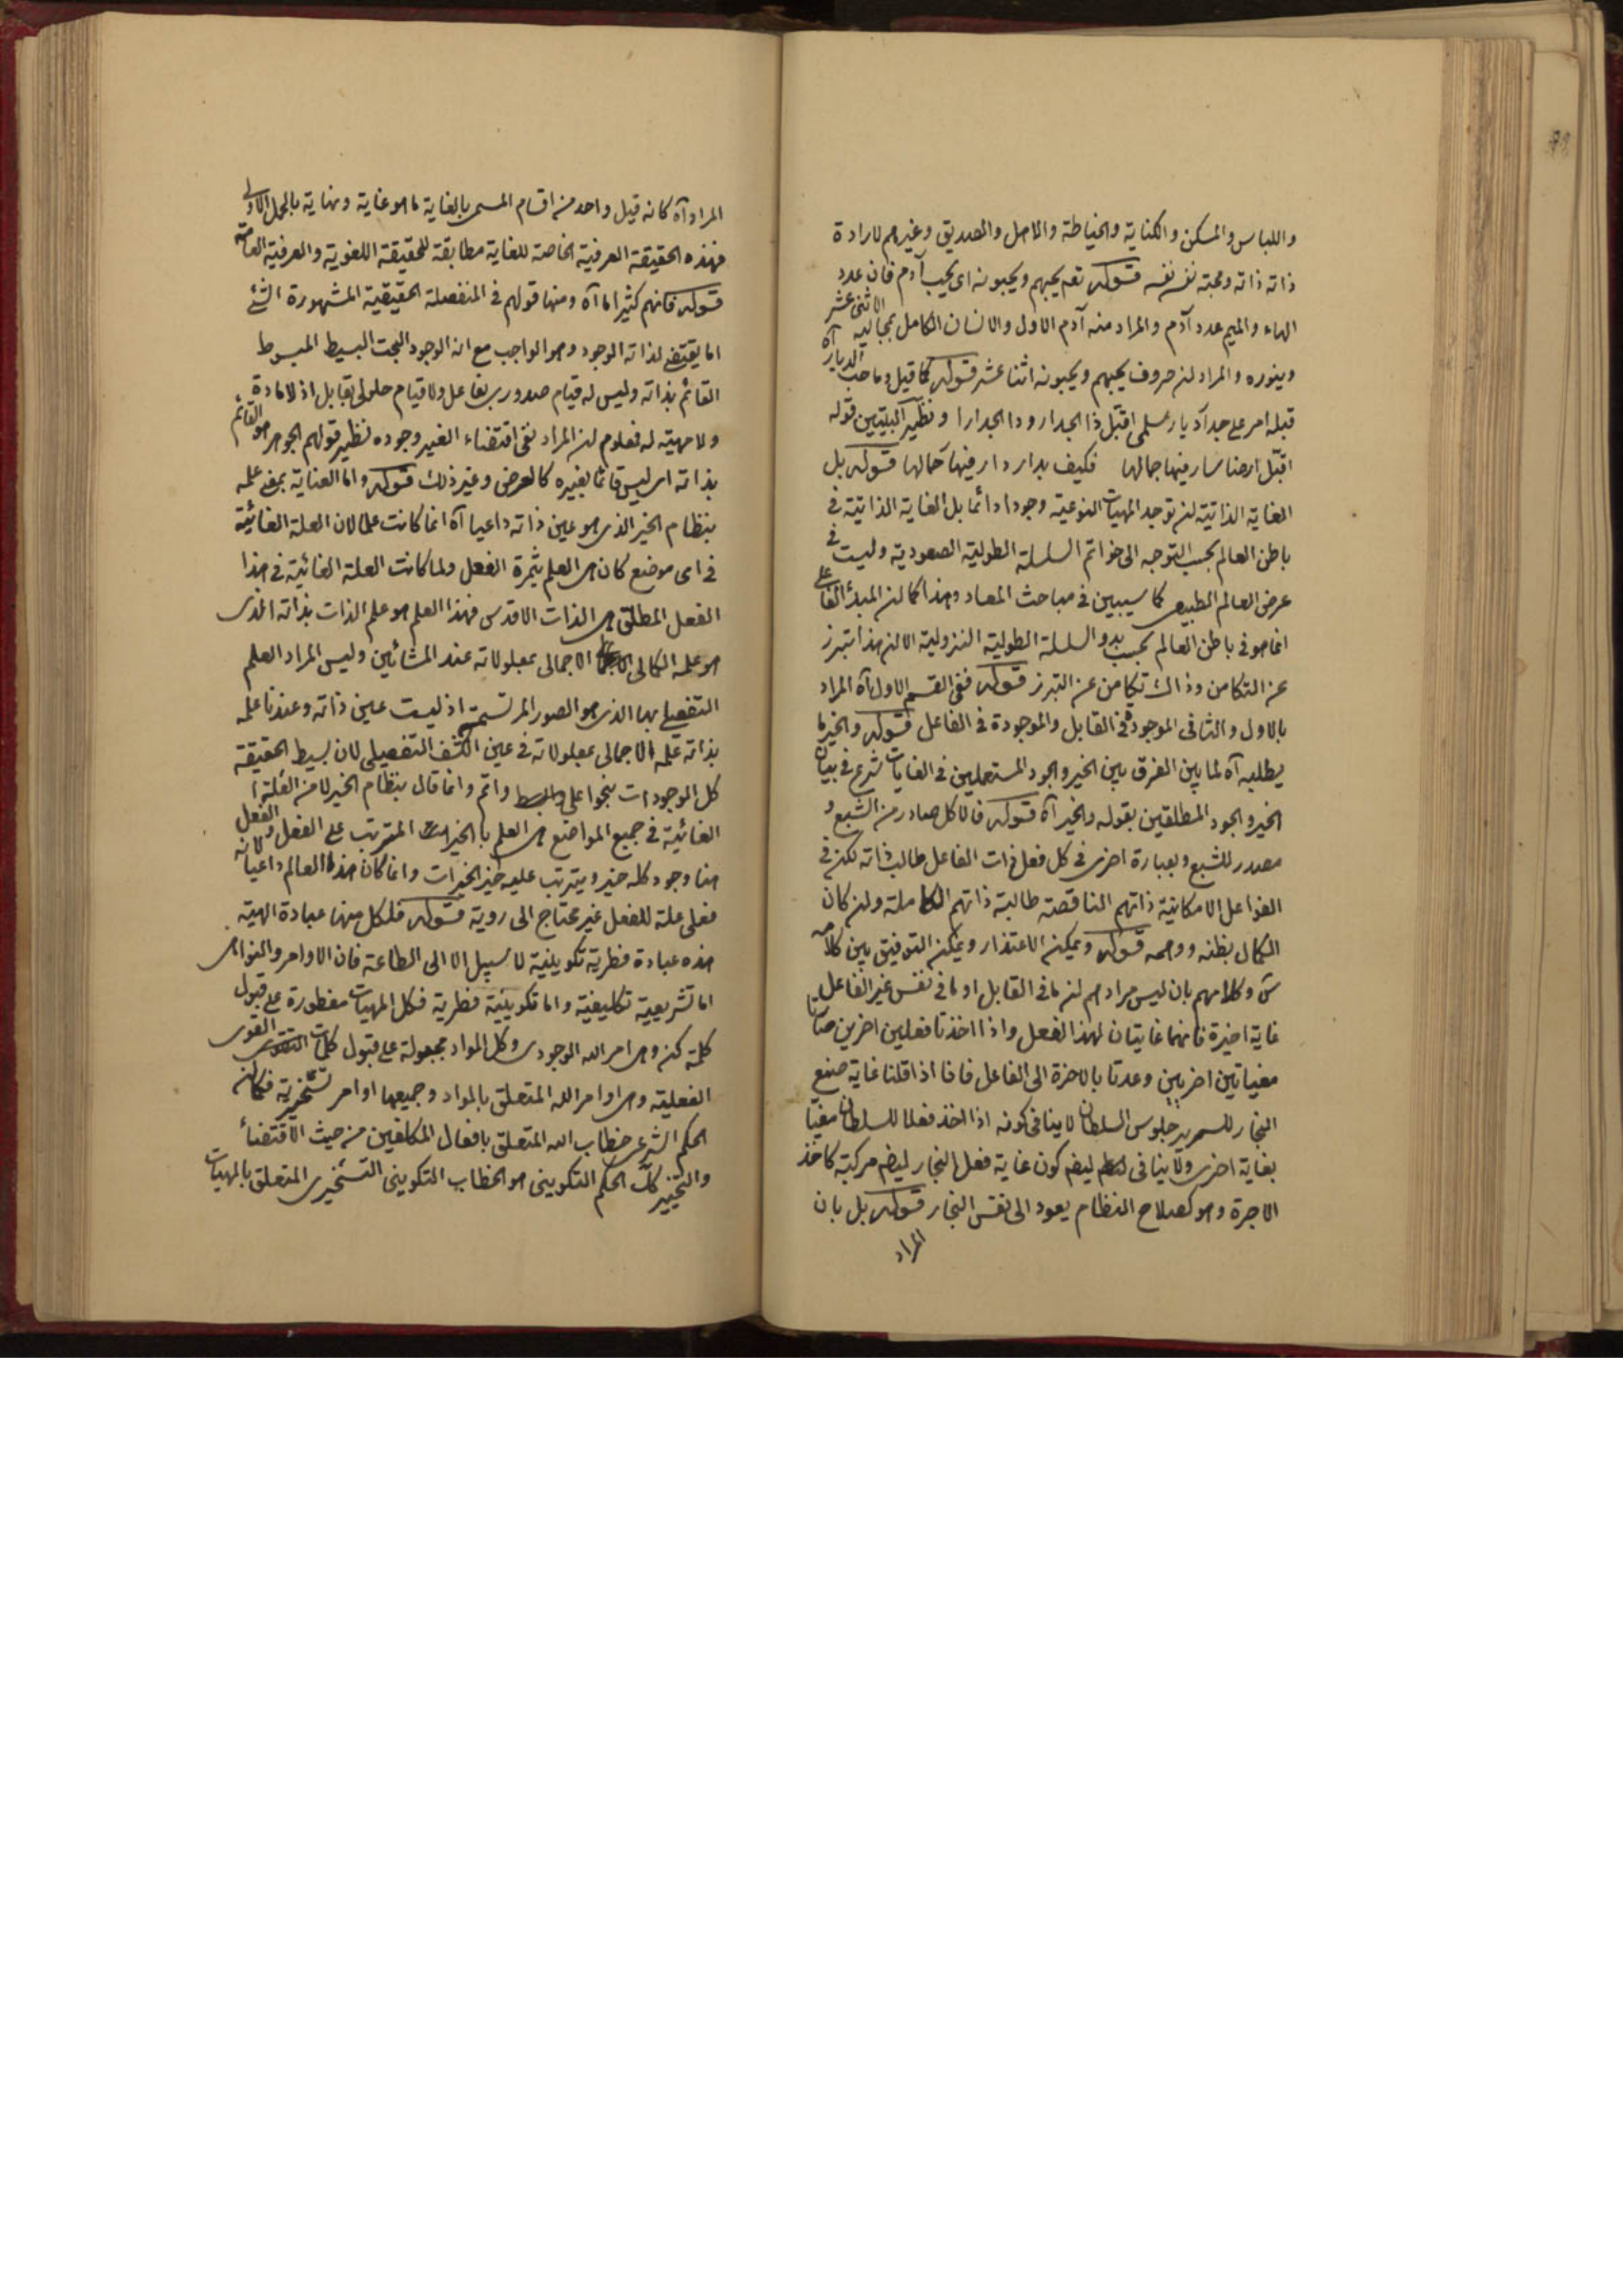 واللباس والمسكن والكناية والخياطة والماصل والصديق وغيرهم لارادة
ذاته ذاته ومحبته نفس نفسه قوله تعه يحبهم ويحبونه اى يحب آدم فان عدد
الهاء والميم عدد آدم والمراد منه آدم الاول والانسان الكامل بمجاليه الاثنى عشر
وينوره والمراد ان حروف يحبهم ويحبونه اثنا عشر قوله كما قيل وما حب الديار آه
قبله امر على جدار ديار سلمى اقبّل ذا الجدار وذا الجدارا ونظير البيتين قوله
اقبّل ارضا سار فيها جمالها فكيف بدار دار فيها جمالها قوله بل
الغاية الذاتية ان توجد المهيات النوعية وجودا دائما بل الغاية الذاتية فى
باطن العالم بحسب التوجه الى خواتم السلسلة الطولية الصعودية وليست فى
عرض العالم الطبيعى كما سيبين فى مباحث المعاد وهذا كما ان المبدأ الفاعلى
انما هو فى باطن العالم بحسب بدو السلسلة الطولية النزولية الا ان هذا تبرز
عن التكامن وذاك تكامن عن التبرز قوله ففى القسم الاول آه المراد
بالاول والثانى الموجودة فى القابل والموجودة فى الفاعل قوله والخير ما
يطلبه آه لما بين الفرق بين الخير والجود المستعملين فى الغايات شرع فى بيان
الخير والجود المطلقين بقوله والخير آه قوله فالاكل صادر من الشبع و
مصدر للشبع وبعبارة اخرى فى كل فعل ذات الفاعل طالب ذاته لكن فى
الفواعل الامكانية ذاتهم الناقصة طالبة ذاتهم الكاملة وان كان
الكمال بظنه ووهمه قوله ويمكن الاعتذار ويمكن التوفيق بين كلامه
س وكلامهم بان ليس مرادهم ان ما فى القابل او ما فى نفس غير الفاعل
غاية اخيرة فانهما غايتان لهذا الفعل واذا اخذنا فعلين اخرين صارتا
مغياتين اخريين وعدتا بالاخرة الى الفاعل فانا اذا قلنا غاية صنع
النجار للسرير جلوس السلطان لا ينافى كونه اذا اخذ فعلا للسلطان مغيا
بغاية اخرى ولا ينافى ايضا كون غاية فعل النجار ايضا مركبة كاخذ
الاجرة وهو كصلاح النظام يعود الى نفس النجار قوله بل بان
المراد
المراد آه كانه قيل واحد من اقسام المسمى بالغاية ما هو غاية ونهاية بالحمل الاولى
فهذه الحقيقة العرفية الخاصة للغاية مطابقة للحقيقة اللغوية والعرفية العامة
قوله فانهم كثيرا ما آه ومنها قولهم فى المنفصلة الحقيقية المشهورة الشئ
اما يقتضى لذاته الوجود وهو الواجب مع انه الوجود البحت البسيط المبسوط
القائم بذاته وليس له قيام صدورى بفاعل ولا قيام حلولى بقابل اذ لا مادة
ولا مهية له فعلوم ان المراد نفى اقتضاء الغير وجوده نظير قولهم الجوهر هو القائم
بذاته اى ليس قائما بغيره كالعرض وغير ذلك قوله واما العناية بمعنى علمه
بنظام الخير الذى هو عين ذاته داعيا آه انما كانت علما لان العلة الغائية
فى اى موضع كان هى العلم بثمرة الفعل ولما كانت العلة الغائية فى هذا
الفعل المطلق هى الذات الاقدس فهذا العلم هو علم الذات بذاته الذى
هو علمه الكمالى الاجمالى بمعلولاته عند المشائين وليس المراد العلم
التفصيلى بها الذى هو الصور المرتسمة اذ ليست عين ذاته وعندنا علمه
بذاته علمه الاجمالى بمعلولاته فى عين الكشف التفصيلى لان بسيط الحقيقة
كل الموجودات بنحو اعلى وابسط واتم وانما قال بنظام الخير لا من العلة
الغائية فى جميع المواضع هى العلم بالخير المترتب على الفعل والفعل
هنا وجود كله خير ويترتب عليه خير الخيرات وانما كان هذا العالم داعيا لانه
فعلى علة للفعل غير محتاج الى روية قوله فلكل منها عبادة الهية
هذه عبادة فطرية تكوينية لا سبيل الا الى الطاعة فان الاوامر والنواهى
اما تشريعية تكليفية واما تكوينية فطرية فكل المهيات مفطورة على قبول
كلمة كن وهى امر الله الوجودى وكل المواد مجبولة على قبول كلمات القوى
الفعلية وهى اوامر الله المتعلق بالمواد وجميعها اوامر تسخيرية فكما ان
الحكم الشرعى خطاب الله المتعلق بافعال المكلفين من حيث الاقتضاء
والتخيير كك الحكم التكوينى هو الخطاب التكوينى التسخيرى المتعلق بالمهيات